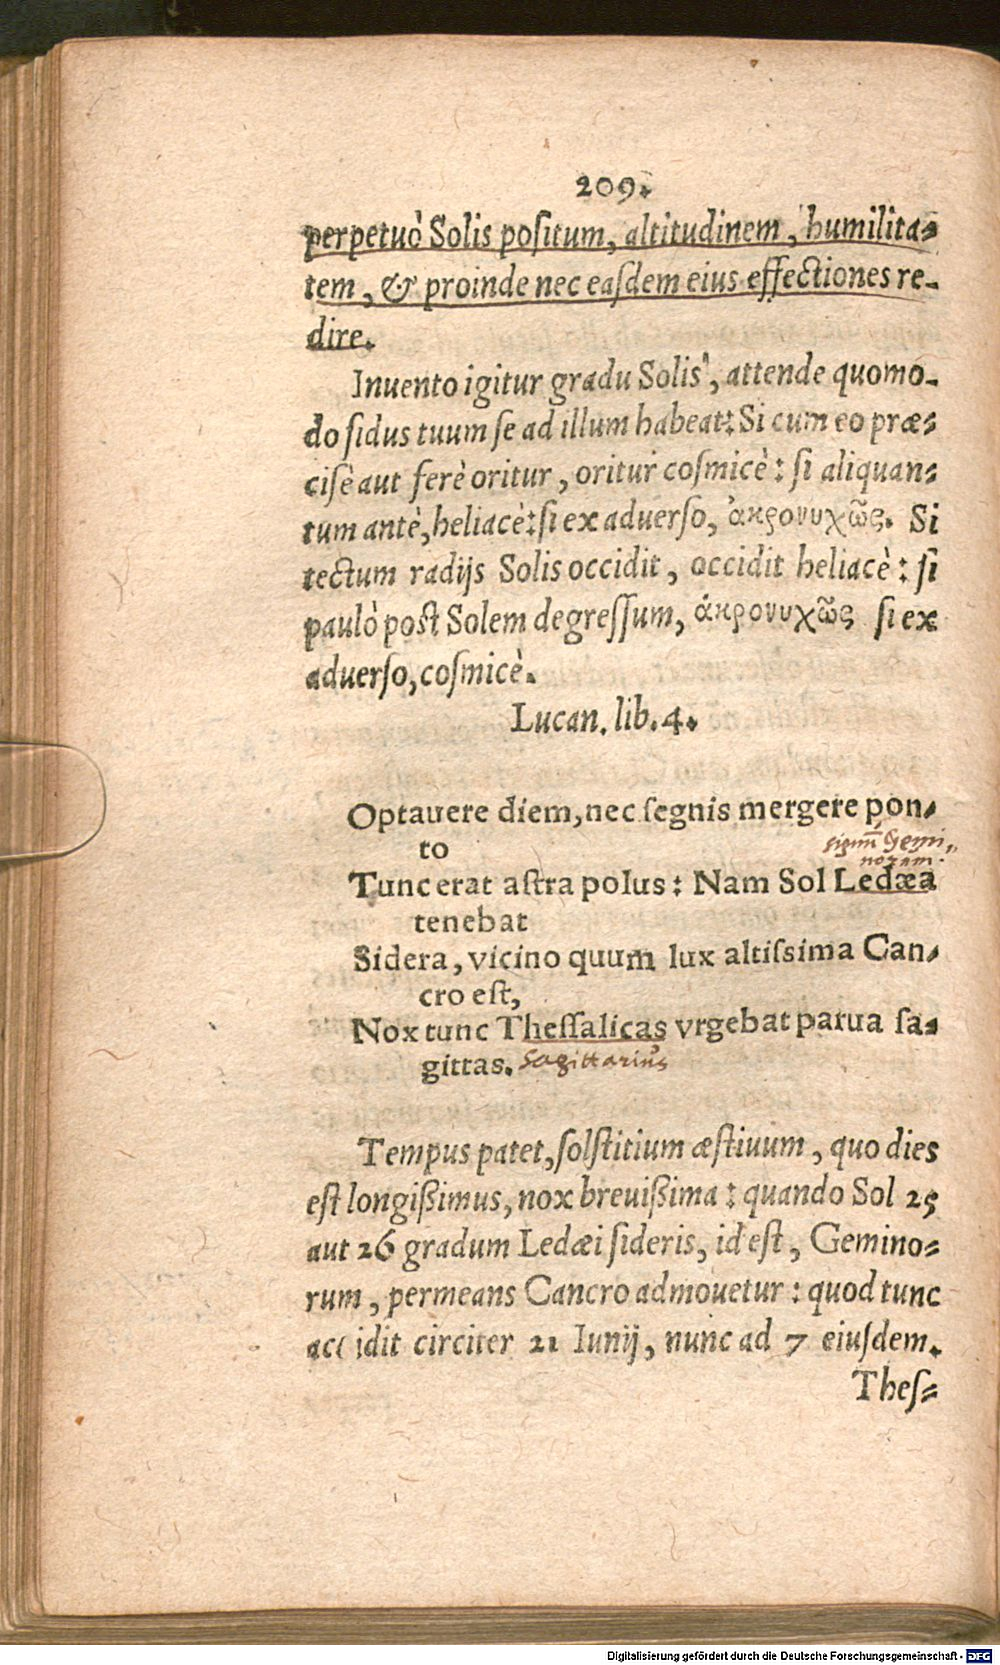 209.
perpetuò Solis positum, altitudinem, humilita-
tem, & proinde nec easdem eius effectiones re-
dire.
Inuento igitur gradu Solis, attende quomo-
do sidus tuum se ad illum habeat: Si cum eo præ-
cisè aut ferè oritur, oritur cosmicè: si aliquan-
tum antè, heliacè: si ex aduerso, ἀκρονυχῶς. Si
tectum radijs Solis occidit, occidit heliacè: si
paulò post Solem degressum, ἀκρονυχῶς si ex
aduerso, cosmicè.
Lucan. lib. 4.
Optauere diem, nec segnis mergere pon-
to
signū Gemi-
norum.
Tunc erat astra polus: Nam Sol Ledæa
tenebat
Sidera, vicino quum lux altissima Can-
cro est,
Nox tunc Thessalicas vrgebat parua sa-
gittas. Sagittarius
Tempus patet, solstitium æstiuum, quo dies
est longißimus, nox breuißima: quando Sol 25
aut 26 gradum Ledæi sideris, id est, Gemino-
rum, permeans Cancro admouetur: quod tunc
accidit circiter 21 Iunij, nunc ad 7 eiusdem.
Thes-
Digitalisierung gefördert durch die Deutsche Forschungsgemeinschaft - DFG